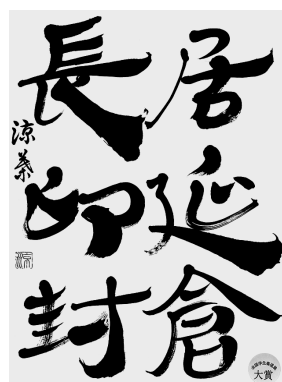 居延倉
長印封
涼葉
大賞